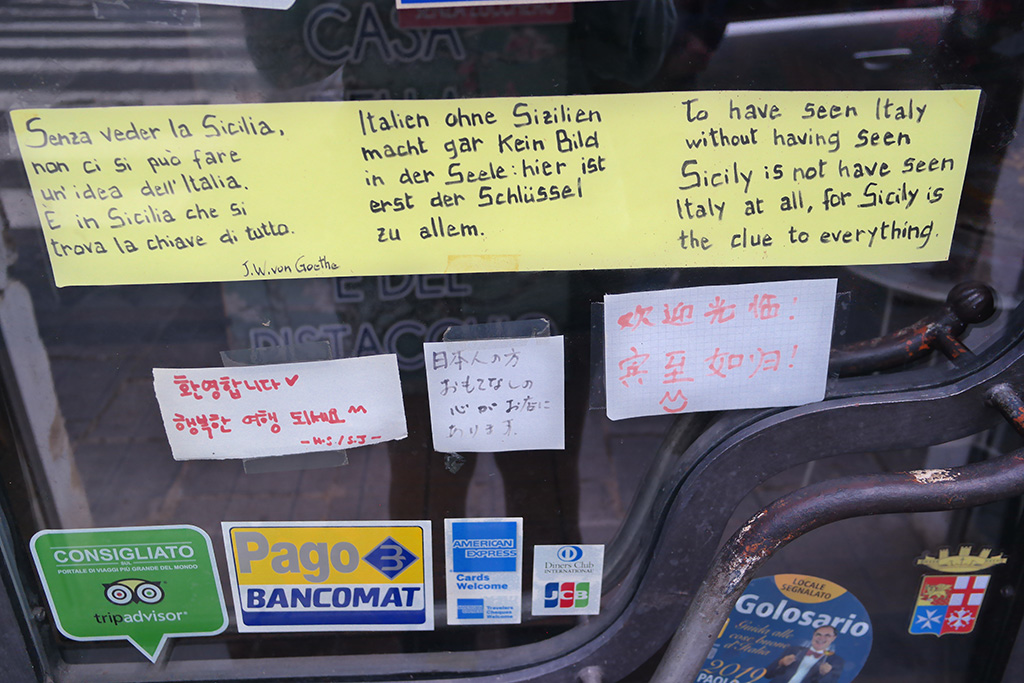 CASA
Senza veder la Sicilia,
non ci si può fare
un'idea dell'Italia.
È in Sicilia che si
trova la chiave di tutto.
J.W.von Goethe
Italien ohne Sizilien
macht gar Kein Bild
in der Seele: hier ist
erst der Schlüssel
zu allem.
To have seen Italy
without having seen
Sicily is not have seen
Italy at all, for Sicily is
the clue to everything.
E DEL
PISTACCHIO
환영합니다♥
행복한 여행 되세요^^
-H.S/S.J-
日本人の方
おもてなしの
心がお店に
あります
欢迎光临!
宾至如归!
CONSIGLIATO
SUL
PORTALE DI VIAGGI PIÙ GRANDE DEL MONDO
tripadvisor®
Pago
BANCOMAT
AMERICAN
EXPRESS
Cards
Welcome
Travelers
Cheques
Welcome
Diners Club
INTERNATIONAL
JCB
LOCALE
SEGNALATO
Golosario
Guida alle
cose buone
d'Italia
2019
PAOLO